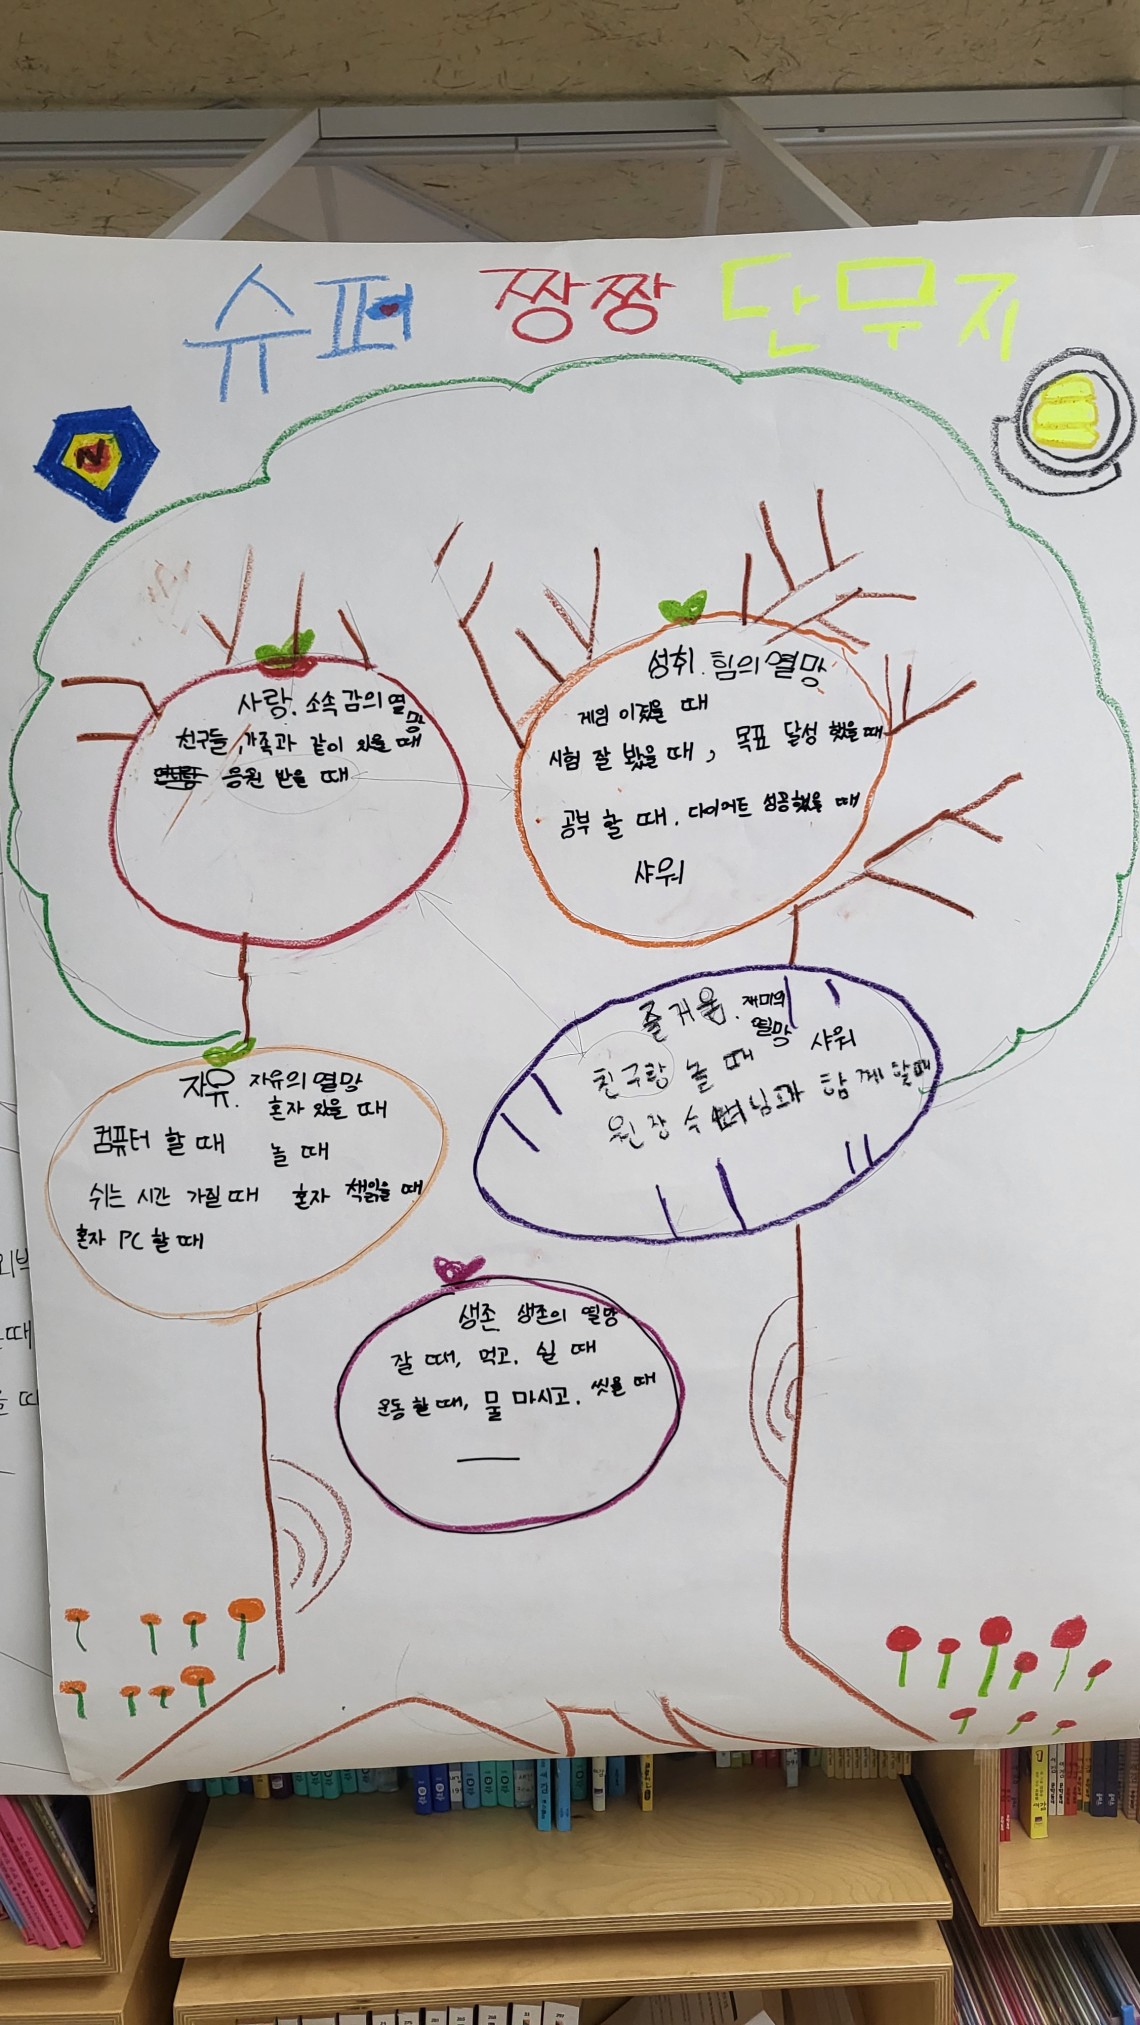 슈퍼 짱짱 단무지
N
사랑. 소속감의 열망
친구들, 가족과 같이 있을 때
응원 받을 때
성취. 힘의 열망
게임 이겼을 때
시험 잘 봤을 때, 목표 달성 했을 때
공부 할 때. 다이어트 성공했을 때
샤워
즐거움. 재미의 열망
친구랑 놀 때 샤워
원장 수녀님과 함께 할때
자유. 자유의 열망
혼자 있을 때
컴퓨터 할 때 놀 때
쉬는 시간 가질 때 혼자 책읽을 때
혼자 PC 할 때
생존 생존의 열망
잘 때, 먹고. 쉴 때
운동 할 때, 물 마시고. 씻을 때